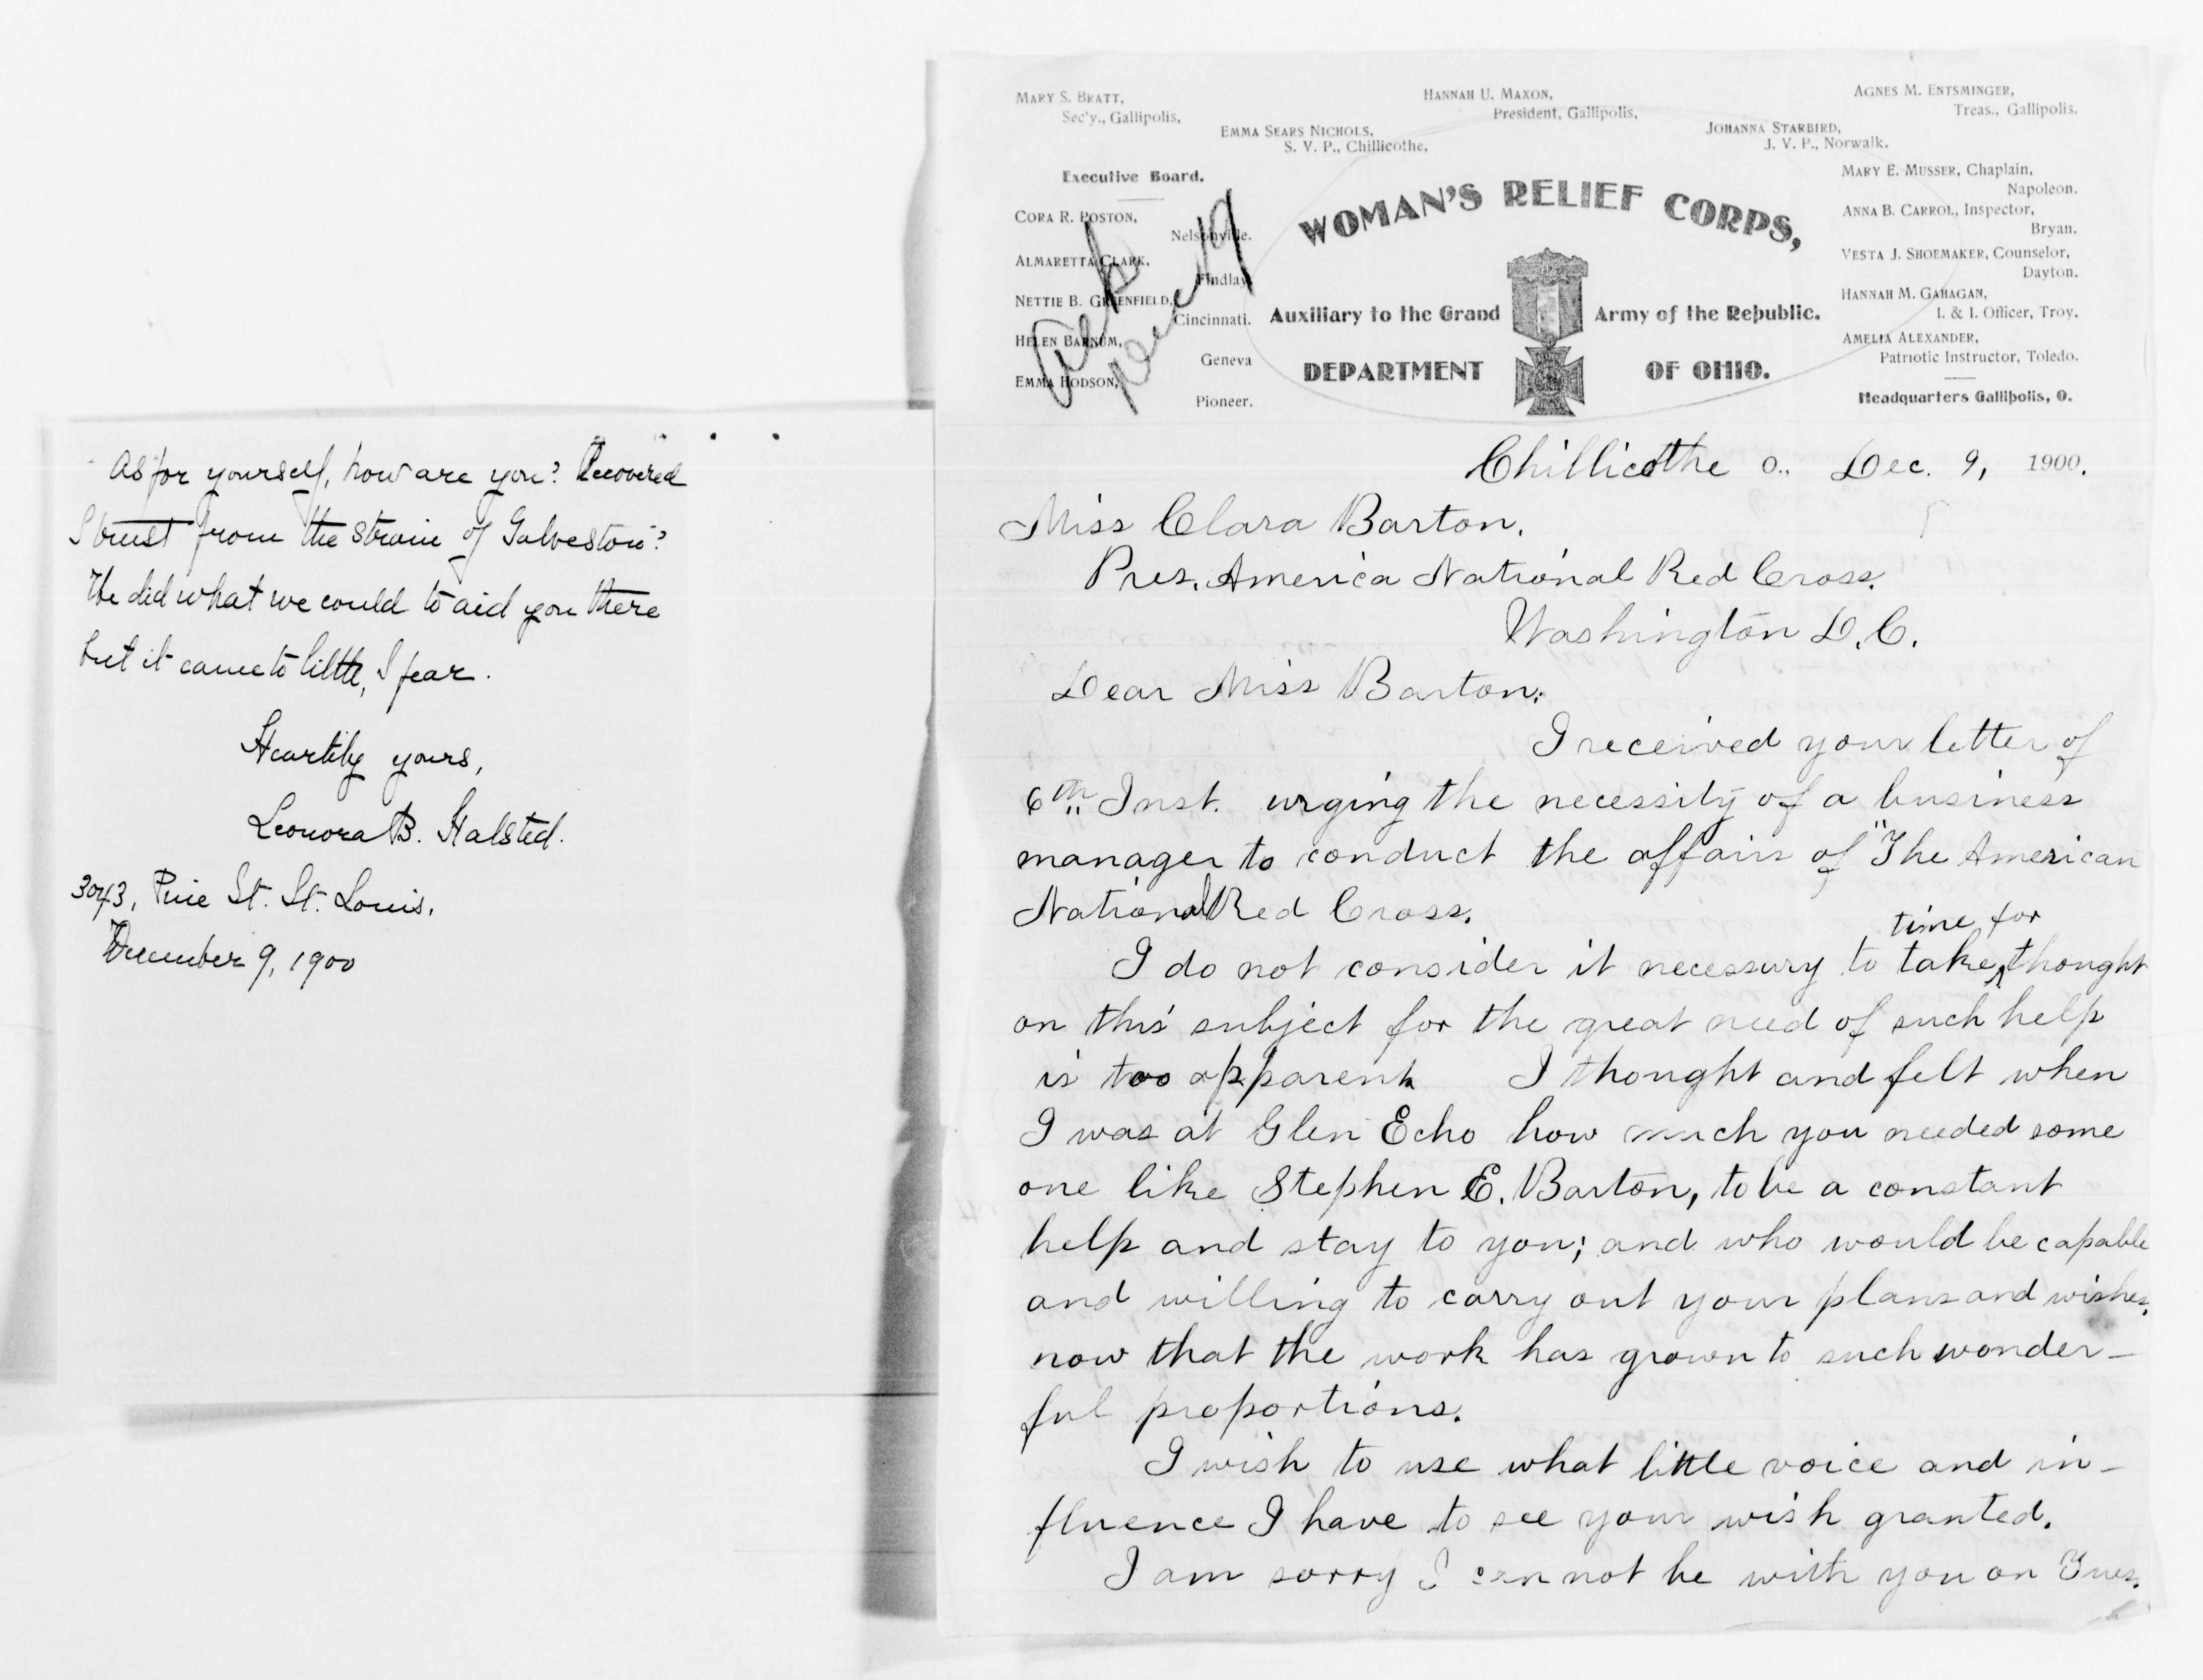 As for yourself, how are you? Recovered
I trust from the strain of Galveston?
We did what we could to aid you there
but it came to little, I fear.
Heartily yours,
Leonora B. Halsted.
3043, Pine St. St. Louis.
December 9, 1900
MARY S. BRATT,
Sec'y., Gallipolis,
HANNAH U. MAXON,
President, Gallipolis,
AGNES M. ENTSMINGER,
Treas., Gallipolis.
EMMA SEARS NICHOLS,
S. V. P., Chillicothe,
JOHANNA STARBIRD,
J. V. P., Norwalk.
Executive Board.
CORA R. POSTON,
Nelsonville.
ALMARETTA CLARK,
Findlay.
NETTIE B. GREENFIELD,
Cincinnati.
HELEN BARNUM,
Geneva
EMMA HODSON,
Pioneer.
WOMAN'S RELIEF CORPS,
Auxiliary to the Grand Army of the Republic.
DEPARTMENT OF OHIO.
MARY E. MUSSER, Chaplain,
Napoleon.
ANNA B. CARROL, Inspector,
Bryan.
VESTA J. SHOEMAKER, Counselor,
Dayton.
HANNAH M. GAHAGAN,
I. & I. Officer, Troy.
AMELIA ALEXANDER,
Patriotic Instructor, Toledo.
Headquarters Gallipolis, O.
Chillicothe O., Dec. 9, 1900.
Miss Clara Barton.
Pres. America National Red Cross.
Washington D.C.
Dear Miss Barton:
I received your letter of
6th Inst. urging the necessity of a business
manager to conduct the affairs of "The American
National Red Cross.
time for
I do not consider it necessary to take thought
on this subject for the great need of such help
is too apparent I thought and felt when
I was at Glen Echo how much you needed some
one like Stephen E. Barton, to be a constant
help and stay to you; and who would be capable
and willing to carry out your plans and wishes,
now that the work has grown to such wonder-
ful proportions.
I wish to use what little voice and in-
fluence I have to see your wish granted.
I am sorry I can not be with you on Tues.